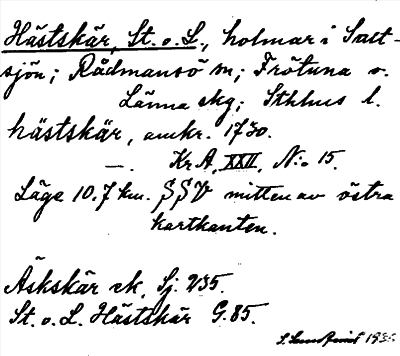 Hästskär, St. o. L., holmar i Salt-
sjön; Rådmansö sn; Frötuna o.
Länna skg; Sthlms l.
hästskär, omkr. 1730.
—„— Kr A, XXII, N:o 15.
Läge 10.7 km. SSV mitten av östra
kartkanten.
Äskskär ek. Sj. 235.
St. o. L. Hästskär G. 85.